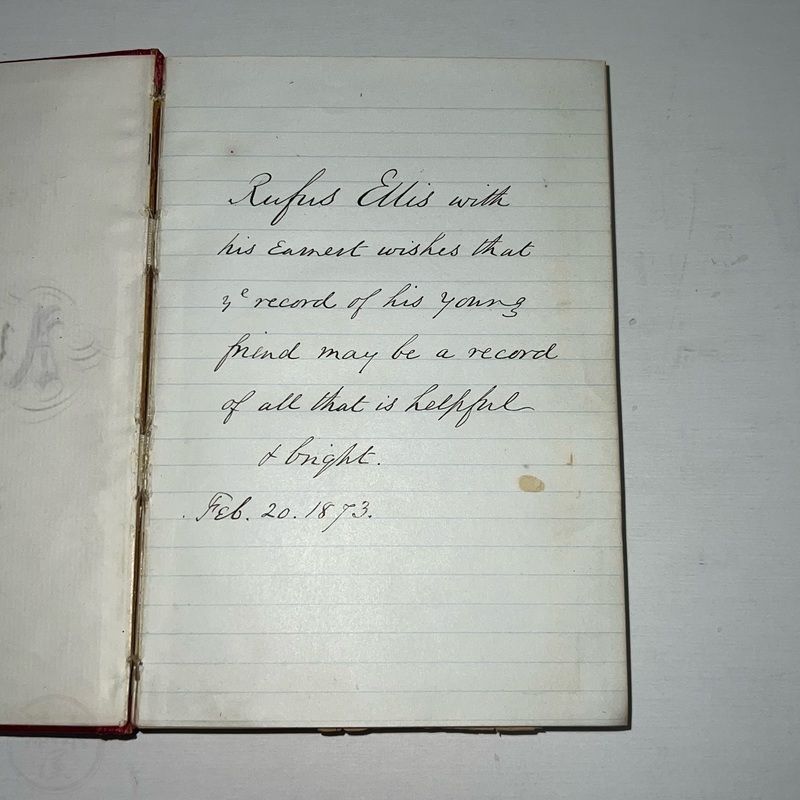 Rufus Ellis with
his earnest wishes that
yᵉ record of his young
friend may be a record
of all that is helpful
& bright.
Feb. 20. 1873.